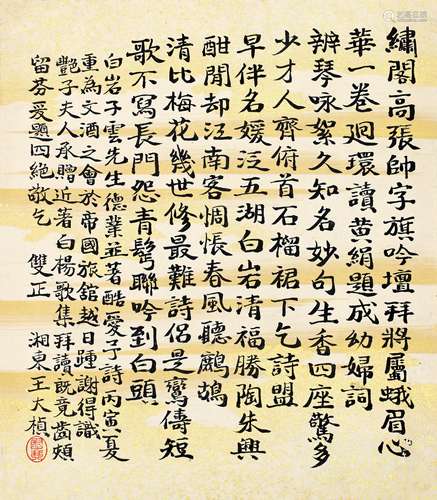 繡閣高張帥字旗吟壇拜將屬蛾眉心
華一卷廻環讀黄絹題成幼婦詞
辨琴咏絮久知名妙句生香四座驚多
少才人齊俯首石榴裙下乞詩盟
早伴名媛泛五湖白岩清福勝陶朱興
酣閒却江南客惆悵春風聽鷓鴣
清比梅花幾世修最難詩侶是鸞儔短
歌不寫長門怨青髩聯吟到白頭
白岩子雲先生德業並著酷愛予詩丙寅夏
重為文酒之會於帝國旅舘越日踵謝得識
艷子夫人承贈近著白楊歌集拜讀既竟齒頰
留芬爰題四絶敬乞 雙正 湘東王大楨